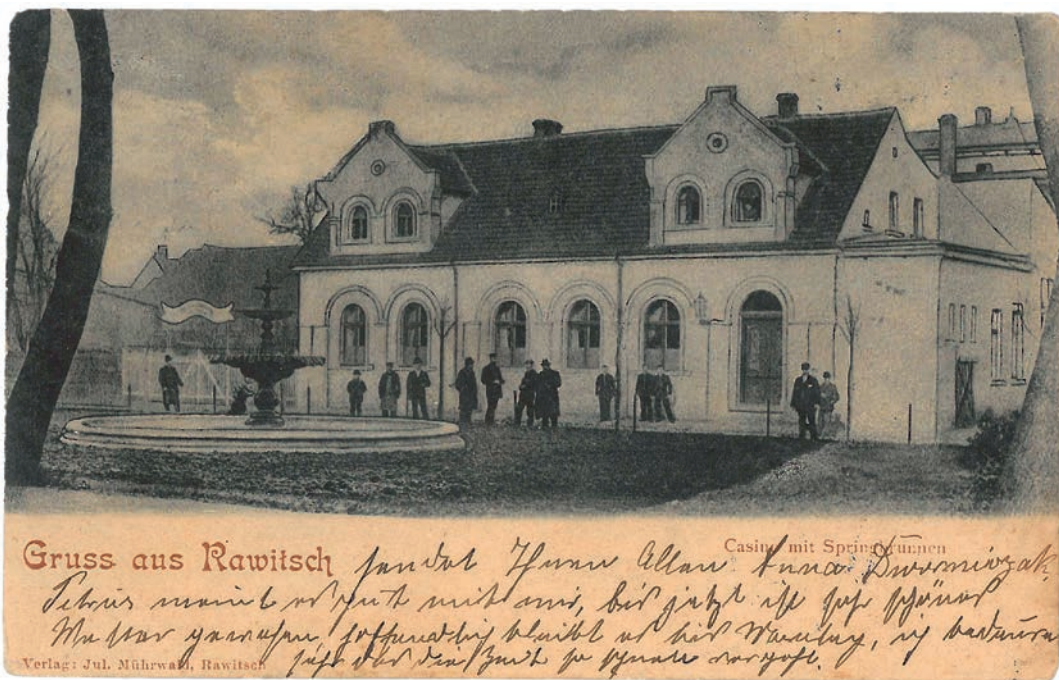 Gruss aus Rawitsch
Casino mit Springbrunnen
sendet Ihnen Allen Anna
meint es gut mit mir, bis jetzt ist sehr schönes
Wetter gewesen, hoffendlich bleibt es bis Montag, ich bedaure
sehr das die Zeit so schnell vergeht.
Verlag: Jul. Mührwald, Rawitsch